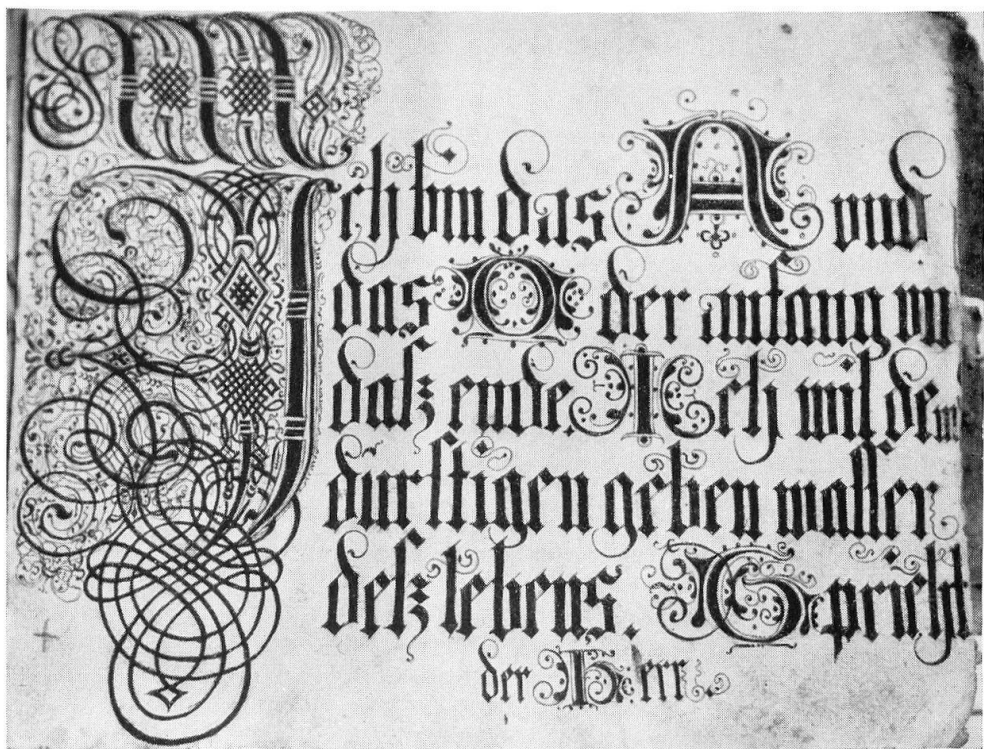 Ich bin das A und
das O der anfang un
daſz ende. Ich wil dem
durſtigen geben waſſer
deſz lebens. Spricht
der Herr.